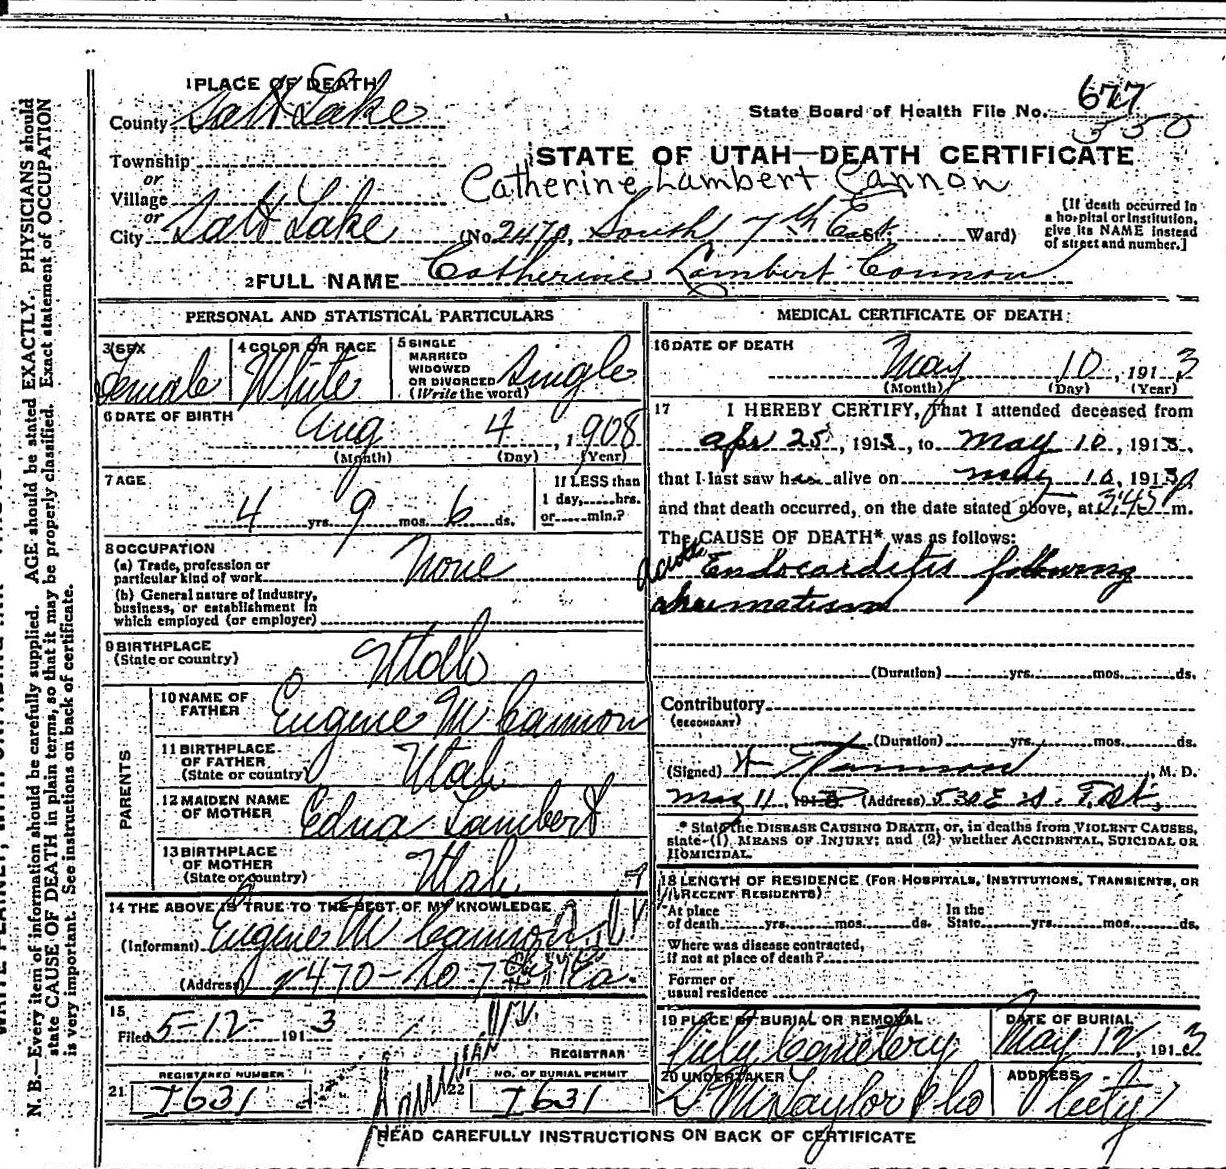 1 PLACE OF DEATH
County Salt Lake
State Board of Health File No. 677
350
Township
or
Village
or
City Salt Lake
STATE OF UTAH—DEATH CERTIFICATE
Catherine Lambert Cannon
(No. 2470, South 7th East St. Ward)
[If death occurred in
a hospital or institution,
give its NAME instead
of street and number.]
2 FULL NAME Catherine Lambert Cannon
PERSONAL AND STATISTICAL PARTICULARS
3 SEX
Female
4 COLOR OR RACE
White
5 SINGLE
MARRIED
WIDOWED
OR DIVORCED
(Write the word)
Single
6 DATE OF BIRTH
Aug 4, 1908
(Month) (Day) (Year)
7 AGE
4 yrs. 9 mos. 6 ds.
If LESS than
1 day, hrs.
or min.?
8 OCCUPATION
(a) Trade, profession or
particular kind of work None
(b) General nature of Industry,
business, or establishment in
which employed (or employer)
9 BIRTHPLACE
(State or country)
Utah
PARENTS
10 NAME OF
FATHER
Eugene M Cannon
11 BIRTHPLACE
OF FATHER
(State or country)
Utah
12 MAIDEN NAME
OF MOTHER
Edna Lambert
13 BIRTHPLACE
OF MOTHER
(State or country)
Utah
14 THE ABOVE IS TRUE TO THE BEST OF MY KNOWLEDGE
(Informant) Eugene M Cannon
(Address) 2470 - So. 7th Ea.
15.
Filed 5-12- 1913
REGISTRAR
21
REGISTERED NUMBER
I631
22
NO. OF BURIAL PERMIT
I631
MEDICAL CERTIFICATE OF DEATH
16 DATE OF DEATH
May 10, 1913
(Month) (Day) (Year)
17 I HEREBY CERTIFY, That I attended deceased from
Apr 25, 1913, to May 10, 1913,
that I last saw h alive on May 10, 1913,
and that death occurred, on the date stated above, at 3:45 P m.
The CAUSE OF DEATH* was as follows:
Acute Endocarditis following
rheumatism
(Duration) yrs. mos. ds.
Contributory
(SECONDARY)
(Duration) yrs. mos. ds.
(Signed) , M. D.
May 11, 1913 (Address) 530 E
* State the DISEASE CAUSING DEATH, or, in deaths from VIOLENT CAUSES,
state (1) MEANS OF INJURY; and (2) whether ACCIDENTAL, SUICIDAL OR
HOMICIDAL.
18 LENGTH OF RESIDENCE (FOR HOSPITALS, INSTITUTIONS, TRANSIENTS, OR
RECENT RESIDENTS)
At place
of death yrs. mos. ds.
In the
State yrs. mos. ds.
Where was disease contracted,
if not at place of death?
Former or
usual residence
19 PLACE OF BURIAL OR REMOVAL
City Cemetery
DATE OF BURIAL
May 12, 1913
20 UNDERTAKER
S M Taylor & Co
ADDRESS
City
READ CAREFULLY INSTRUCTIONS ON BACK OF CERTIFICATE
N. B.—Every item of information should be carefully supplied. AGE should be stated EXACTLY. PHYSICIANS should
state CAUSE OF DEATH in plain terms, so that it may be properly classified. Exact statement of OCCUPATION
is very important. See instructions on back of certificate.